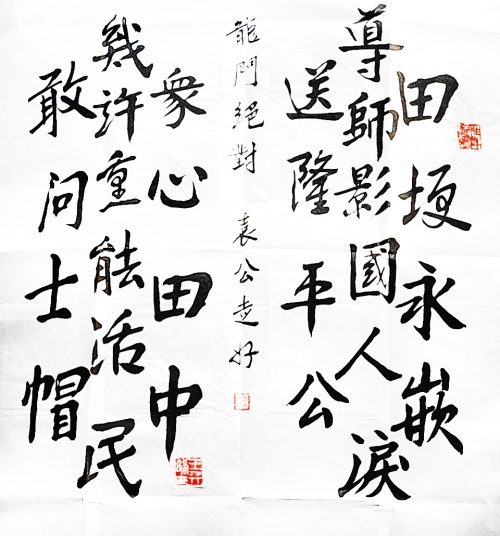 田埂永嵌
尊師影國人淚
送隆平公
敢問士帽
幾許重能活民
衆心田中
龍門絕對 袁公走好